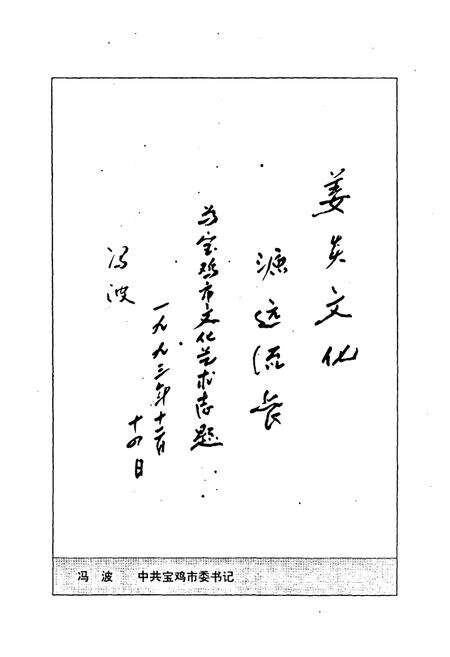 姜炎文化
源远流长
为宝鸡市文化艺术志题
一九九三年十二月
十四日
冯波
冯 波 中共宝鸡市委书记